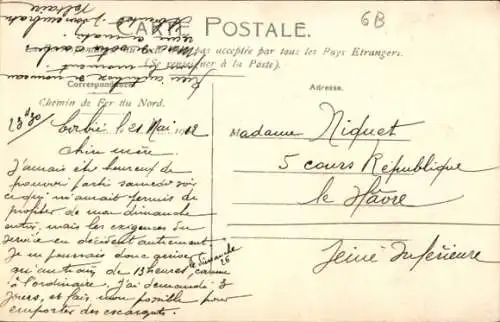 CARTE POSTALE.
pas acceptée par tous les Pays Etrangers.
(Se renseigner à la Poste).
Correspondance
Adresse.
Chemin de Fer du Nord.
6B
23h30
Corbie, le 21 Mai 1912
Chère mère,
J'aurais été heureux de
pouvoir partir samedi soir
ce qui m'aurait permis de
profiter de mon dimanche
entier, mais les exigences du
service en décident autrement
Je ne pourrais donc arriver
le dimanche
26
qu'au train de 13 heures, comme
à l'ordinaire. J'ai demandé 3
jours, et fais mon possible pour
emporter des escargots.
Madame Niquet
5 cours République
le Hâvre
Seine Inférieure